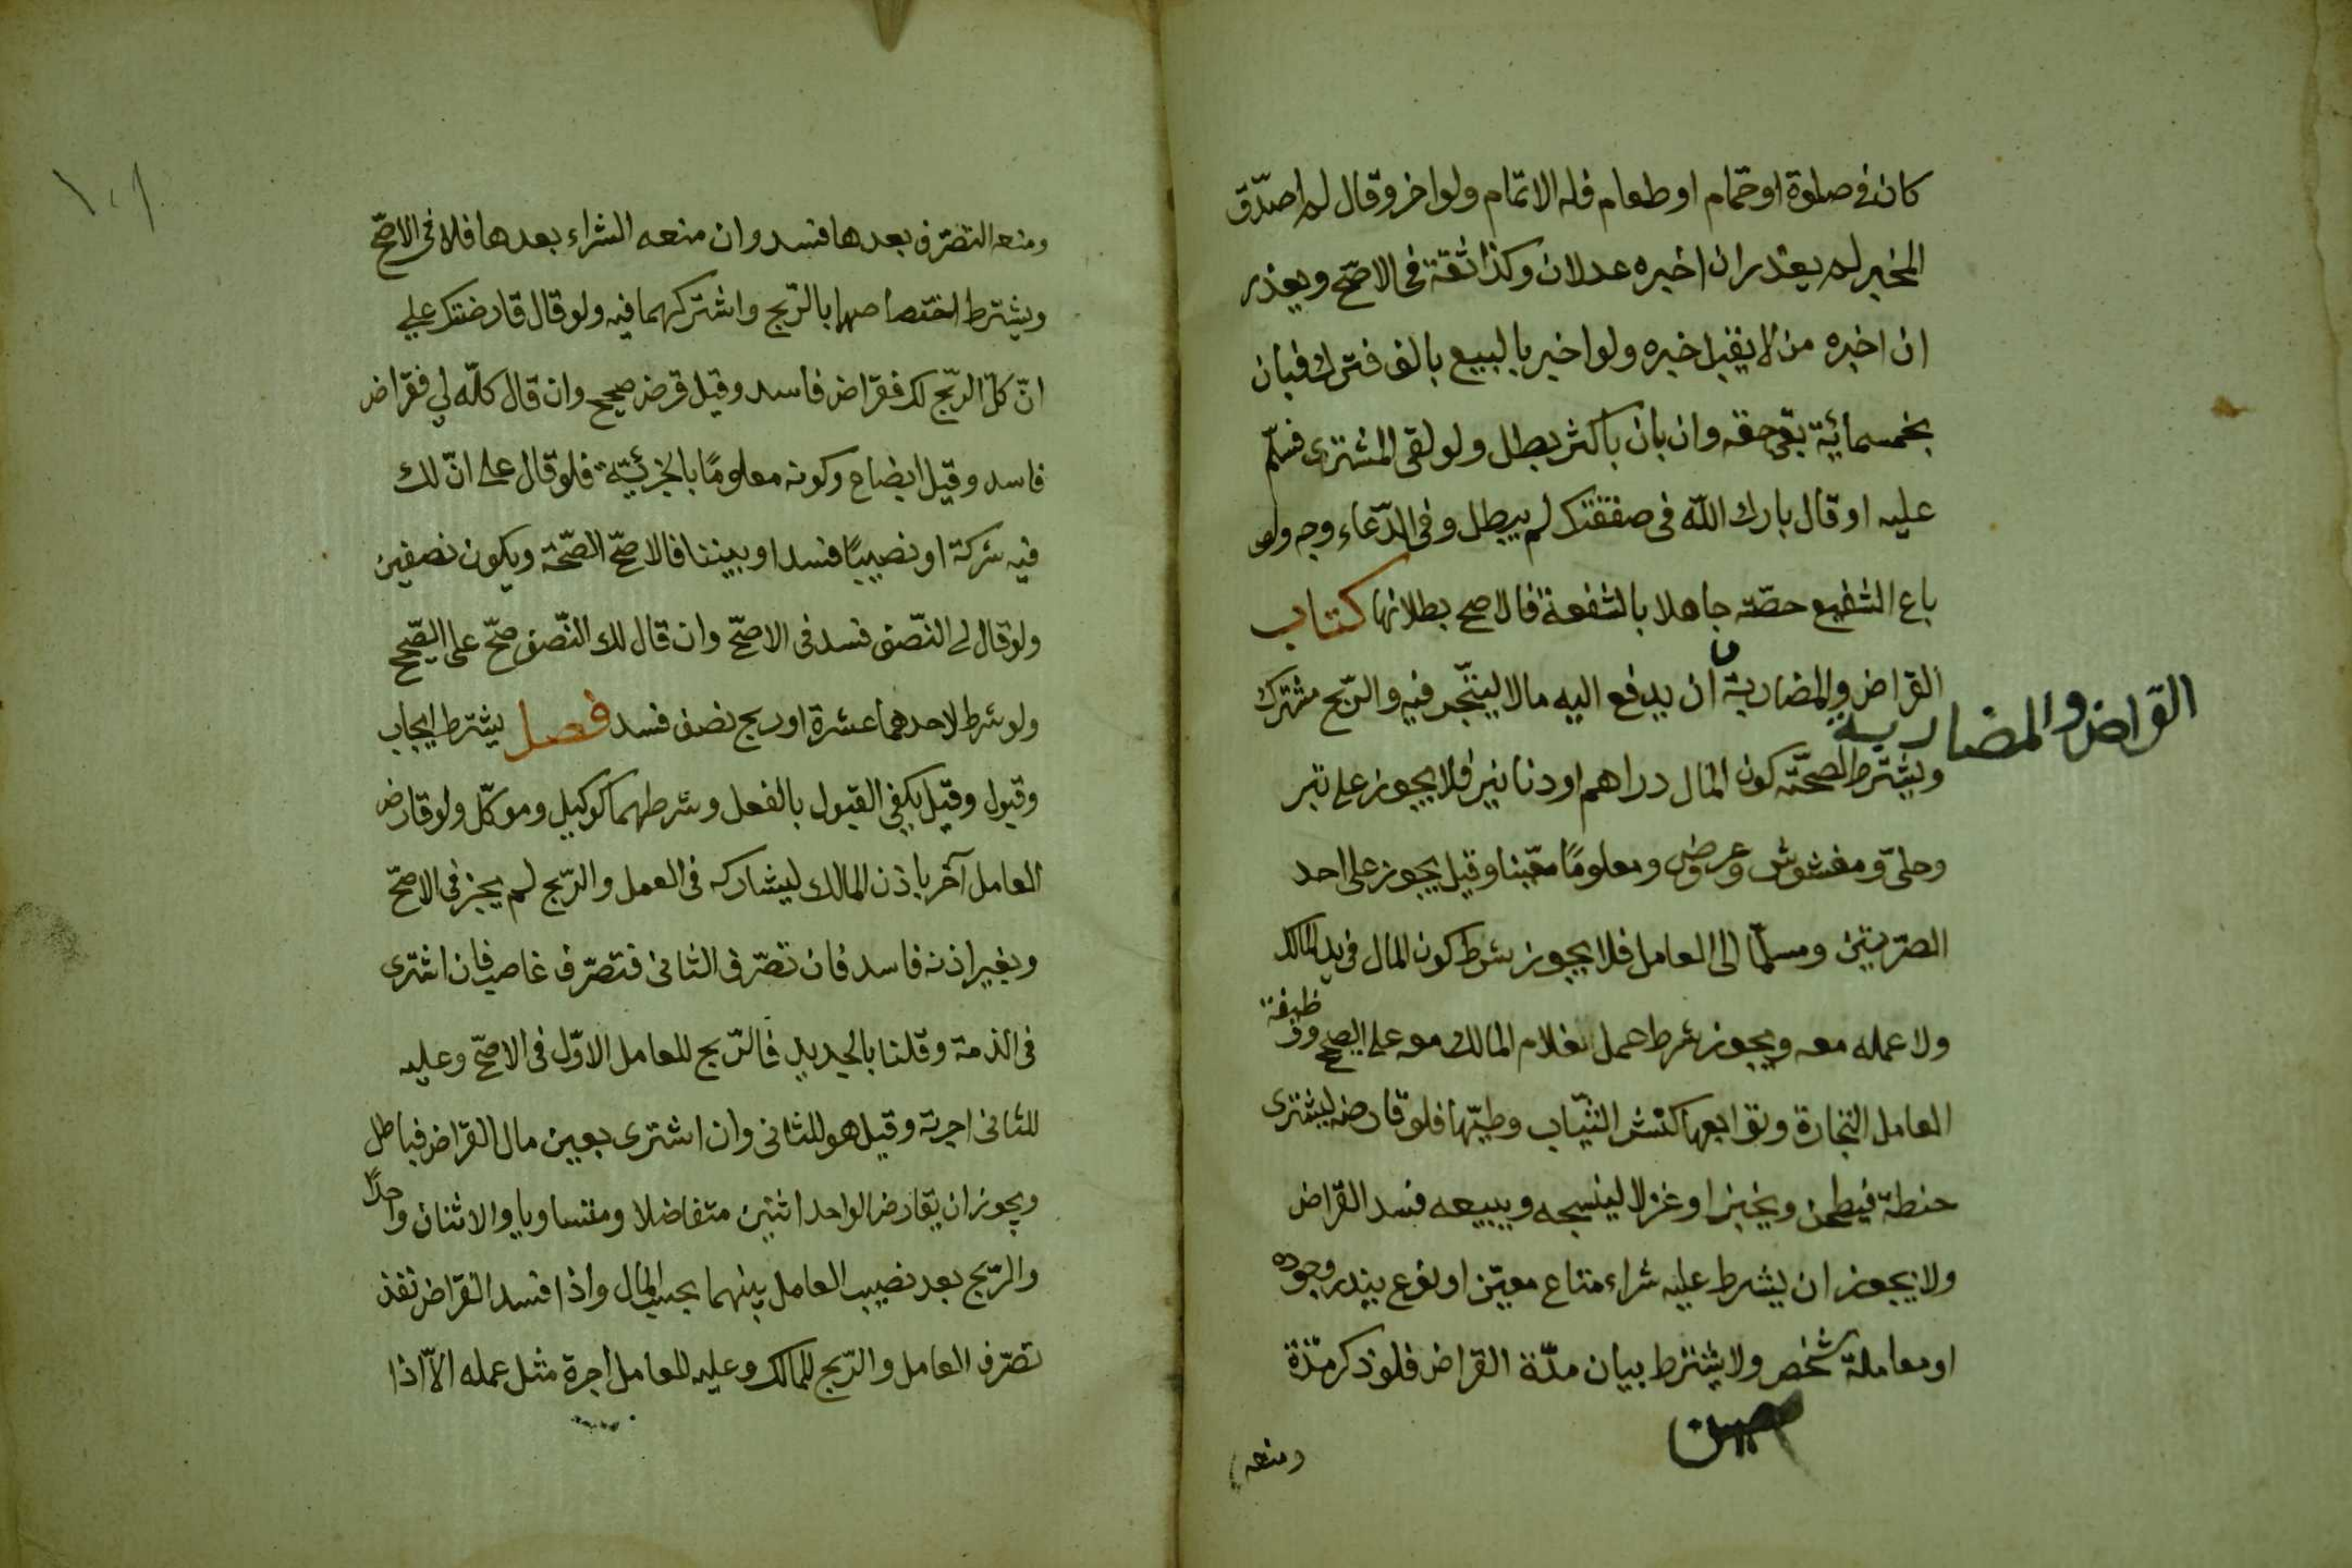 كان في صلوة او حمام او طعام فله الاتمام ولو اخر وقال لم اصدّق
المخبر لم يعذر ان اخبره عدلان وكذا ثقة في الاصحّ ويعذر
ان اخبره من لا يقبل خبره ولو اخبر بالبيع بالف فترك فبان
بخمسمائة بقي حقه وان بان باكثر بطل ولو لقي المشتري فسلّم
عليه او قال بارك اللّه في صفقتك لم يبطل وفي الدّعاء وجه ولو
باع الشفيع حصّته جاهلا بالشفعة فالاصح بطلانها كتاب
القراض والمضاربة ان يدفع اليه مالا ليتّجر فيه والرّبح مشترك
القراض والمضاربة
ويشترط لصحّته كون المال دراهم او دنانير فلا يجوز على تبر
وحليّ ومغشوش وعروض ومعلومًا معّينا وقيل يجوز على احد
الصّرّتين ومسلّما الى العامل فلا يجوز شرط كون المال في يد المالك
ولا عمله معه ويجوز شرط عمل غلام المالك معه على الصحيح ووظيفة
العامل التجارة وتوابعها كنشر الثيّاب وطيّها فلو قارضه ليشتري
حنطة فيطحن ويخبز او غزلا لينسجه ويبيعه فسد القراض
ولا يجوز ان يشرط عليه شراء متاع معيّن او نوع يندر وجوده
او معاملة شخص ولا يشترط بيان مدّة القراض فلو ذكر مدّة
ومنعه
ومنعه التصّرف بعدها فسد وان منعه الشراء بعدها فلا في الاصحّ
ويشترط اختصاصهما بالرّبح واشتركهما فيه ولو قال قارضتك على
انّ كلّ الرّبح لك فقراض فاسد وقيل قرض صحيح وان قال كلّه لي فقراض
فاسد وقيل ابضاع وكونه معلومًا بالجزئيّة فلو قال على انّ لك
فيه شركة او نصيبًا فسد او بيننا فالاصحّ الصّحّة ويكون نصفين
ولو قال لي النّصف فسد في الاصحّ وان قال لك النّصف صحّ على الصّحيح
ولو شرط لاحدهما عشرة او ربح نصف فسد فصل يشترط ايجاب
وقبول وقيل يكفي القبول بالفعل وشرطهما كوكيل وموكّل ولو قارض
العامل آخر باذن المالك ليشاركه في العمل والرّبح لم يجز في الاصحّ
وبغير اذنه فاسد فان تصّرف الثاني فتصرّف غاصب فان اشترى
في الذمة وقلنا بالجديد فالرّبح للعامل الاوّل في الاصحّ وعليه
للثاني اجرته وقيل هو للثاني وان اشترى بعين مال القراض فباطل
ويجوز ان يقارض الواحد اثنين متفاضلا ومتساويا والاثنان واحدًا
والرّبح بعد نصيب العامل بينهما بحسب المال واذا فسد القراض نفذ
تصّرف العامل والرّبح للمالك وعليه للعامل اجرة مثل عمله الاّ اذا